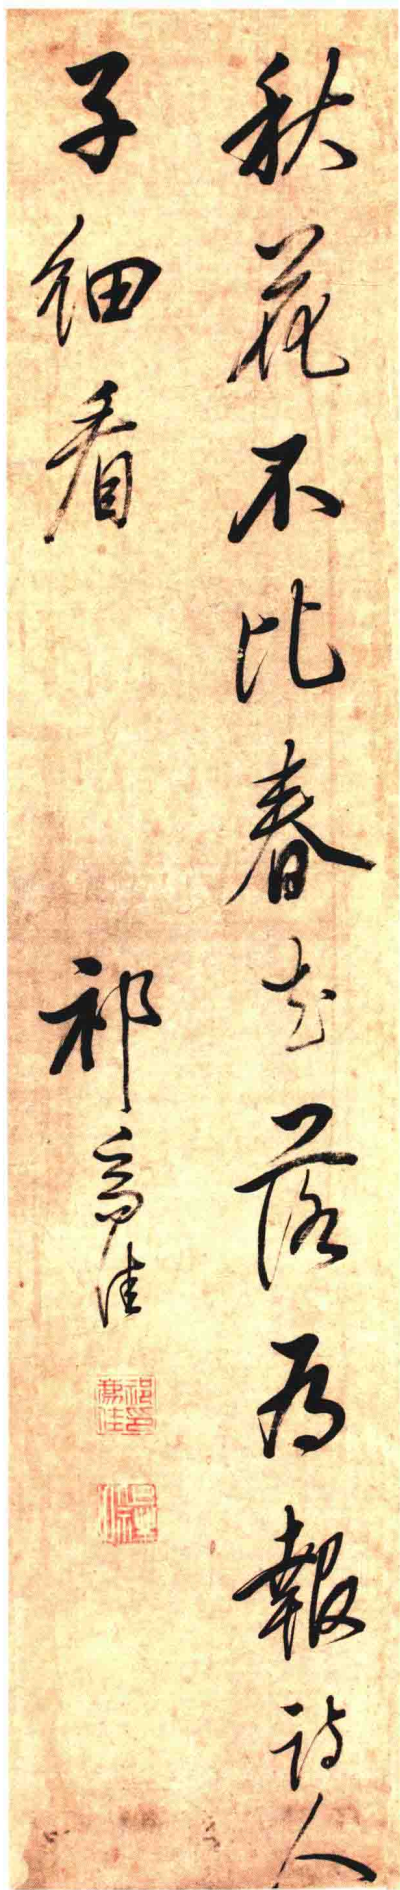 秋花不比春花落為報詩人
子細看
祁豸佳
祁豸佳印